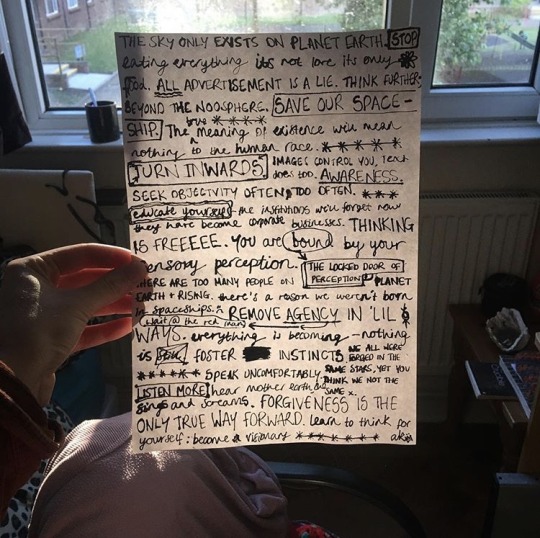 THE SKY ONLY EXISTS ON PLANET EARTH. STOP
eating everything its not love its only
food. ALL ADVERTISEMENT IS A LIE. THINK FURTHER:
BEYOND THE NOOSPHERE. SAVE OUR SPACE-
SHIP. The true meaning of existence will mean
nothing to the human race. *****
TURN INWARDS IMAGES CONTROL YOU, TEXT
does too. AWARENESS.
SEEK OBJECTIVITY OFTEN, TOO OFTEN. ***
educate yourself the institutions will forget now
they have become corporate businesses. THINKING
IS FREEEEE. YOU are bound by your
sensory perception. THE LOCKED DOOR OF PERCEPTION
THERE ARE TOO MANY PEOPLE ON PLANET
EARTH + RISING. there's a reason we weren't born
in spaceships. REMOVE AGENCY IN 'LIL
wait @ the red man
WAYS. everything is becoming - nothing
is FOSTER INSTINCTS WE ALL WERE FORGED IN THE
***** SPEAK UNCOMFORTABLY. SAME STARS, YET YOU
LISTEN MORE hear mother earth THINK WE NOT THE SAME x.
and screams. FORGIVENESS IS THE
ONLY TRUE WAY FORWARD. learn to think for
yourself: become a visionary *******